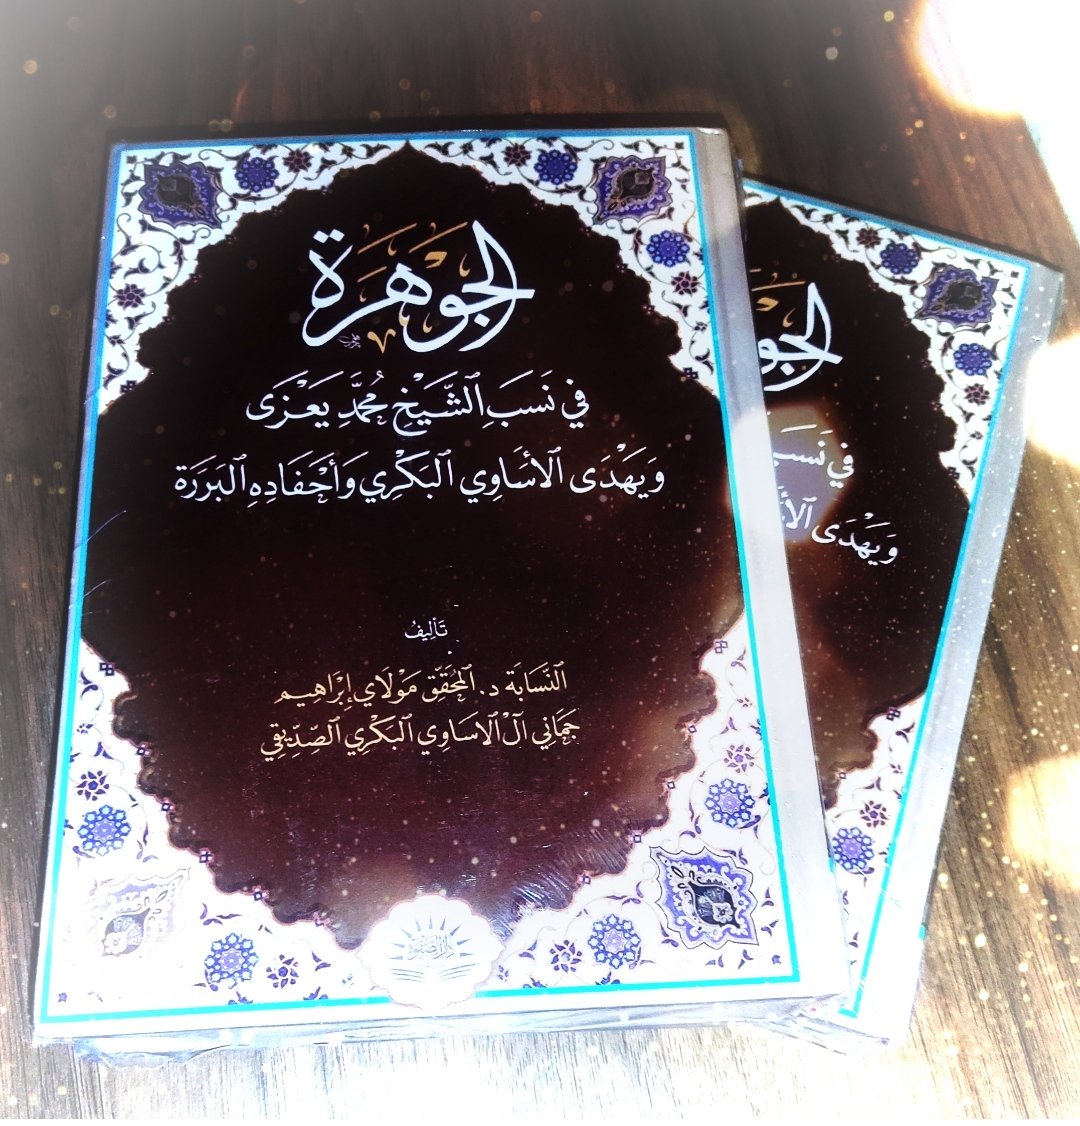 الجَوْهَرَة
في نَسَبِ الشَّيْخِ مُحمَّدِ يَعْزَى
وَيَهْدَى الأسَاوِي البَكْرِي وَأحْفَادِهِ البَرَرَة
تَأليفُ
النَّسَابَة د. المُحَقِّق مَوْلَاي إبْرَاهِيم
جمَانِي آلْ الاسَاوِي البَكْرِي الصِّدِّيقِي
في نَسَبَ
وَيَهْدَى